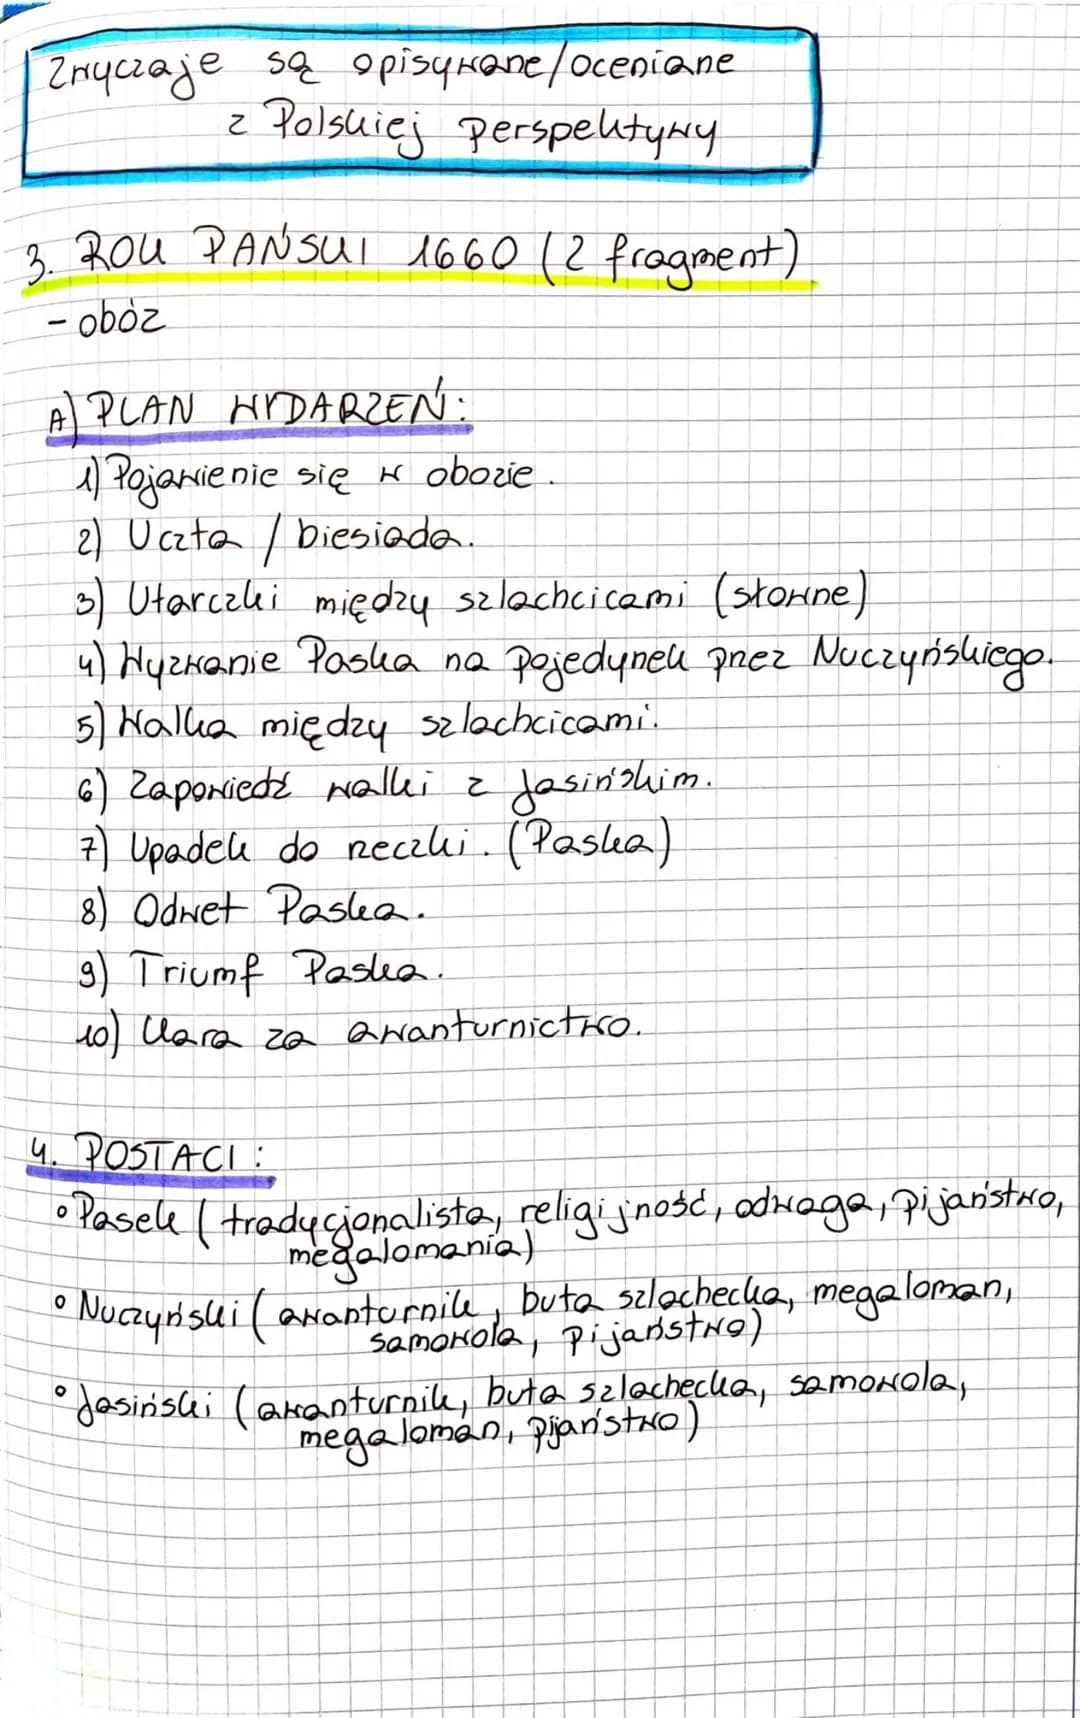 Zwyczaje są opisywane/oceniane
z Polskiej perspektywy
3. ROK PAŃSKI 1660 (2 fragment)
- obóz
A) PLAN WYDARZEŃ:
1) Pojawienie się w obozie.
2) Uczta / biesiada.
3) Utarczki między szlachcicami (słowne)
4) Wyzwanie Paska na pojedynek przez Nuczyńskiego.
5) Walka między szlachcicami.
6) Zapowiedź walki z Jasińskim.
7) Upadek do rzeczki. (Paska)
8) Odwet Paska.
9) Triumf Paska.
10) Kara za awanturnictwo.
4. POSTACI:
• Pasek (tradycjonalista, religijność, odwaga, pijaństwo,
megalomania)
• Nuczyński (awanturnik, buta szlachecka, megaloman,
samowola, pijaństwo)
• Jasiński (awanturnik, buta szlachecka, samowola,
megaloman, pijaństwo)